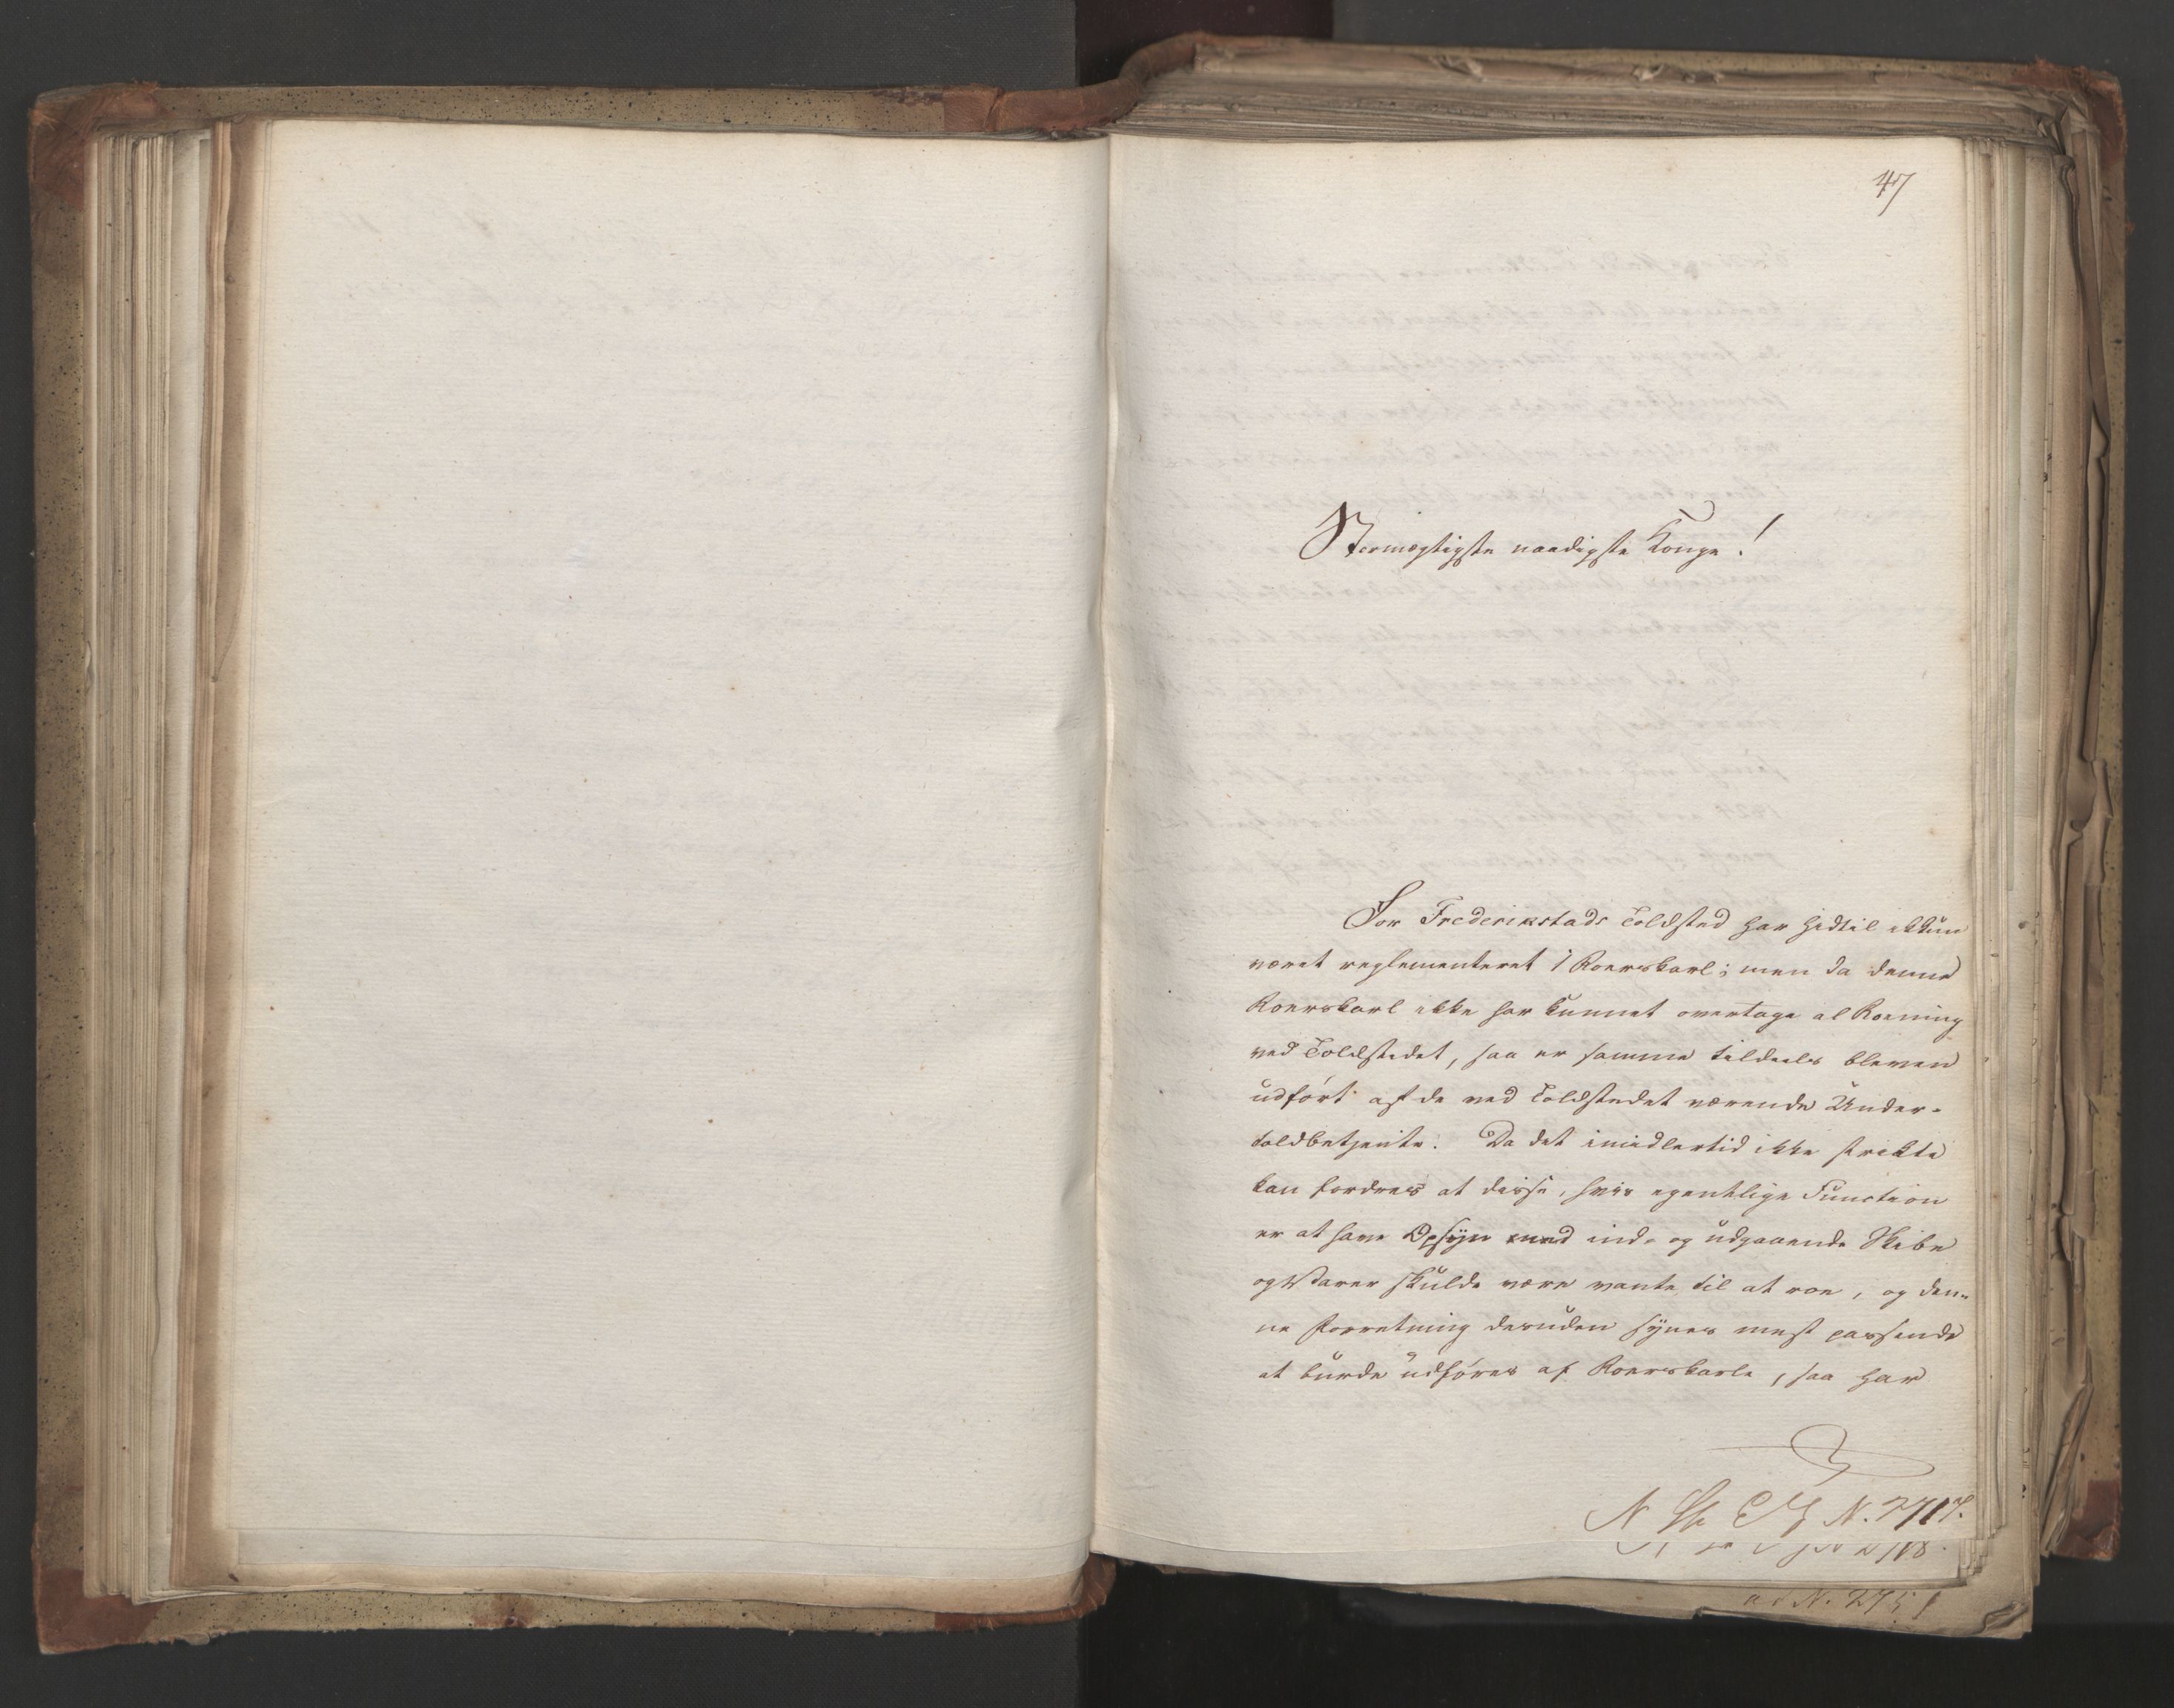 47
Stormægtigste naadigste Konge!
For Frederikstads Toldsted har hidtil ikkun
været reglementeret 1 Roerskarl; men da denne
Roerskarl ikke har kunnet overtage al Roening
ved Toldstedet, saa er samme tildeels bleven
udført af de ved Toldstedet værende Under-
toldbetjente. Da det imidlertid ikke strikte
kan fordres at disse, hvis egentlige Function
er at have Opsyn med ind- og udgaaende Skibe
og Varer skulde være vante til at roe, og den-
ne Forretning desuden synes mest passende
at burde udføres af Roerskarle, saa har
N. 2717.
ad N. 2751